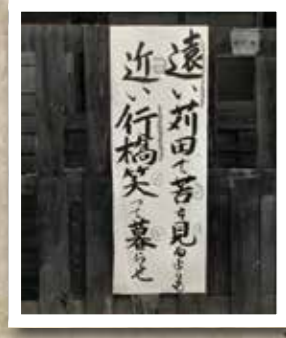 遠い苅田で苦を見るよりも
近い行橋笑って暮らせ